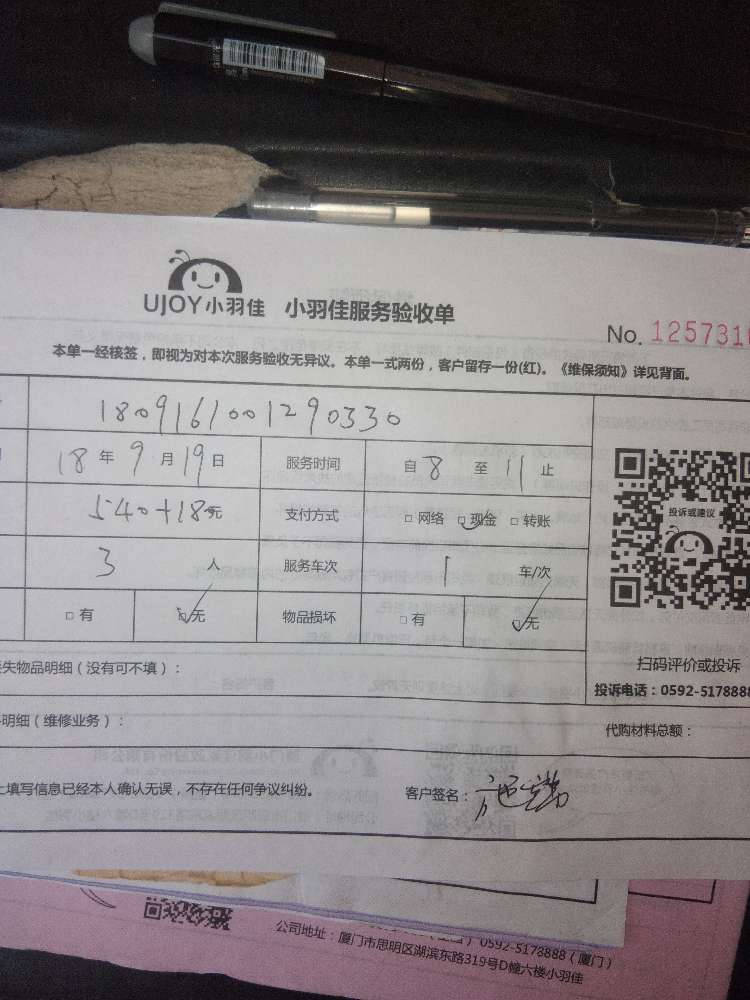 UJOY小羽佳 小羽佳服务验收单
No. 1257310
本单一经核签，即视为对本次服务验收无异议。本单一式两份，客户留存一份(红)。《维保须知》详见背面。
1809161001290330
18 年 9 月 19 日 服务时间 自 8 至 11 止
540+18元 支付方式 □ 网络 □ 现金 □ 转账
投诉或建议
3 人 服务车次 1 车/次
□ 有 □ 无 物品损坏 □ 有 □ 无
失物品明细（没有可不填）：
扫码评价或投诉
投诉电话：0592-5178888
明细（维修业务）：
代购材料总额：
填写信息已经本人确认无误，不存在任何争议纠纷。 客户签名：
0592-5178888（厦门）
公司地址：厦门市思明区湖滨东路319号D幢六楼小羽佳